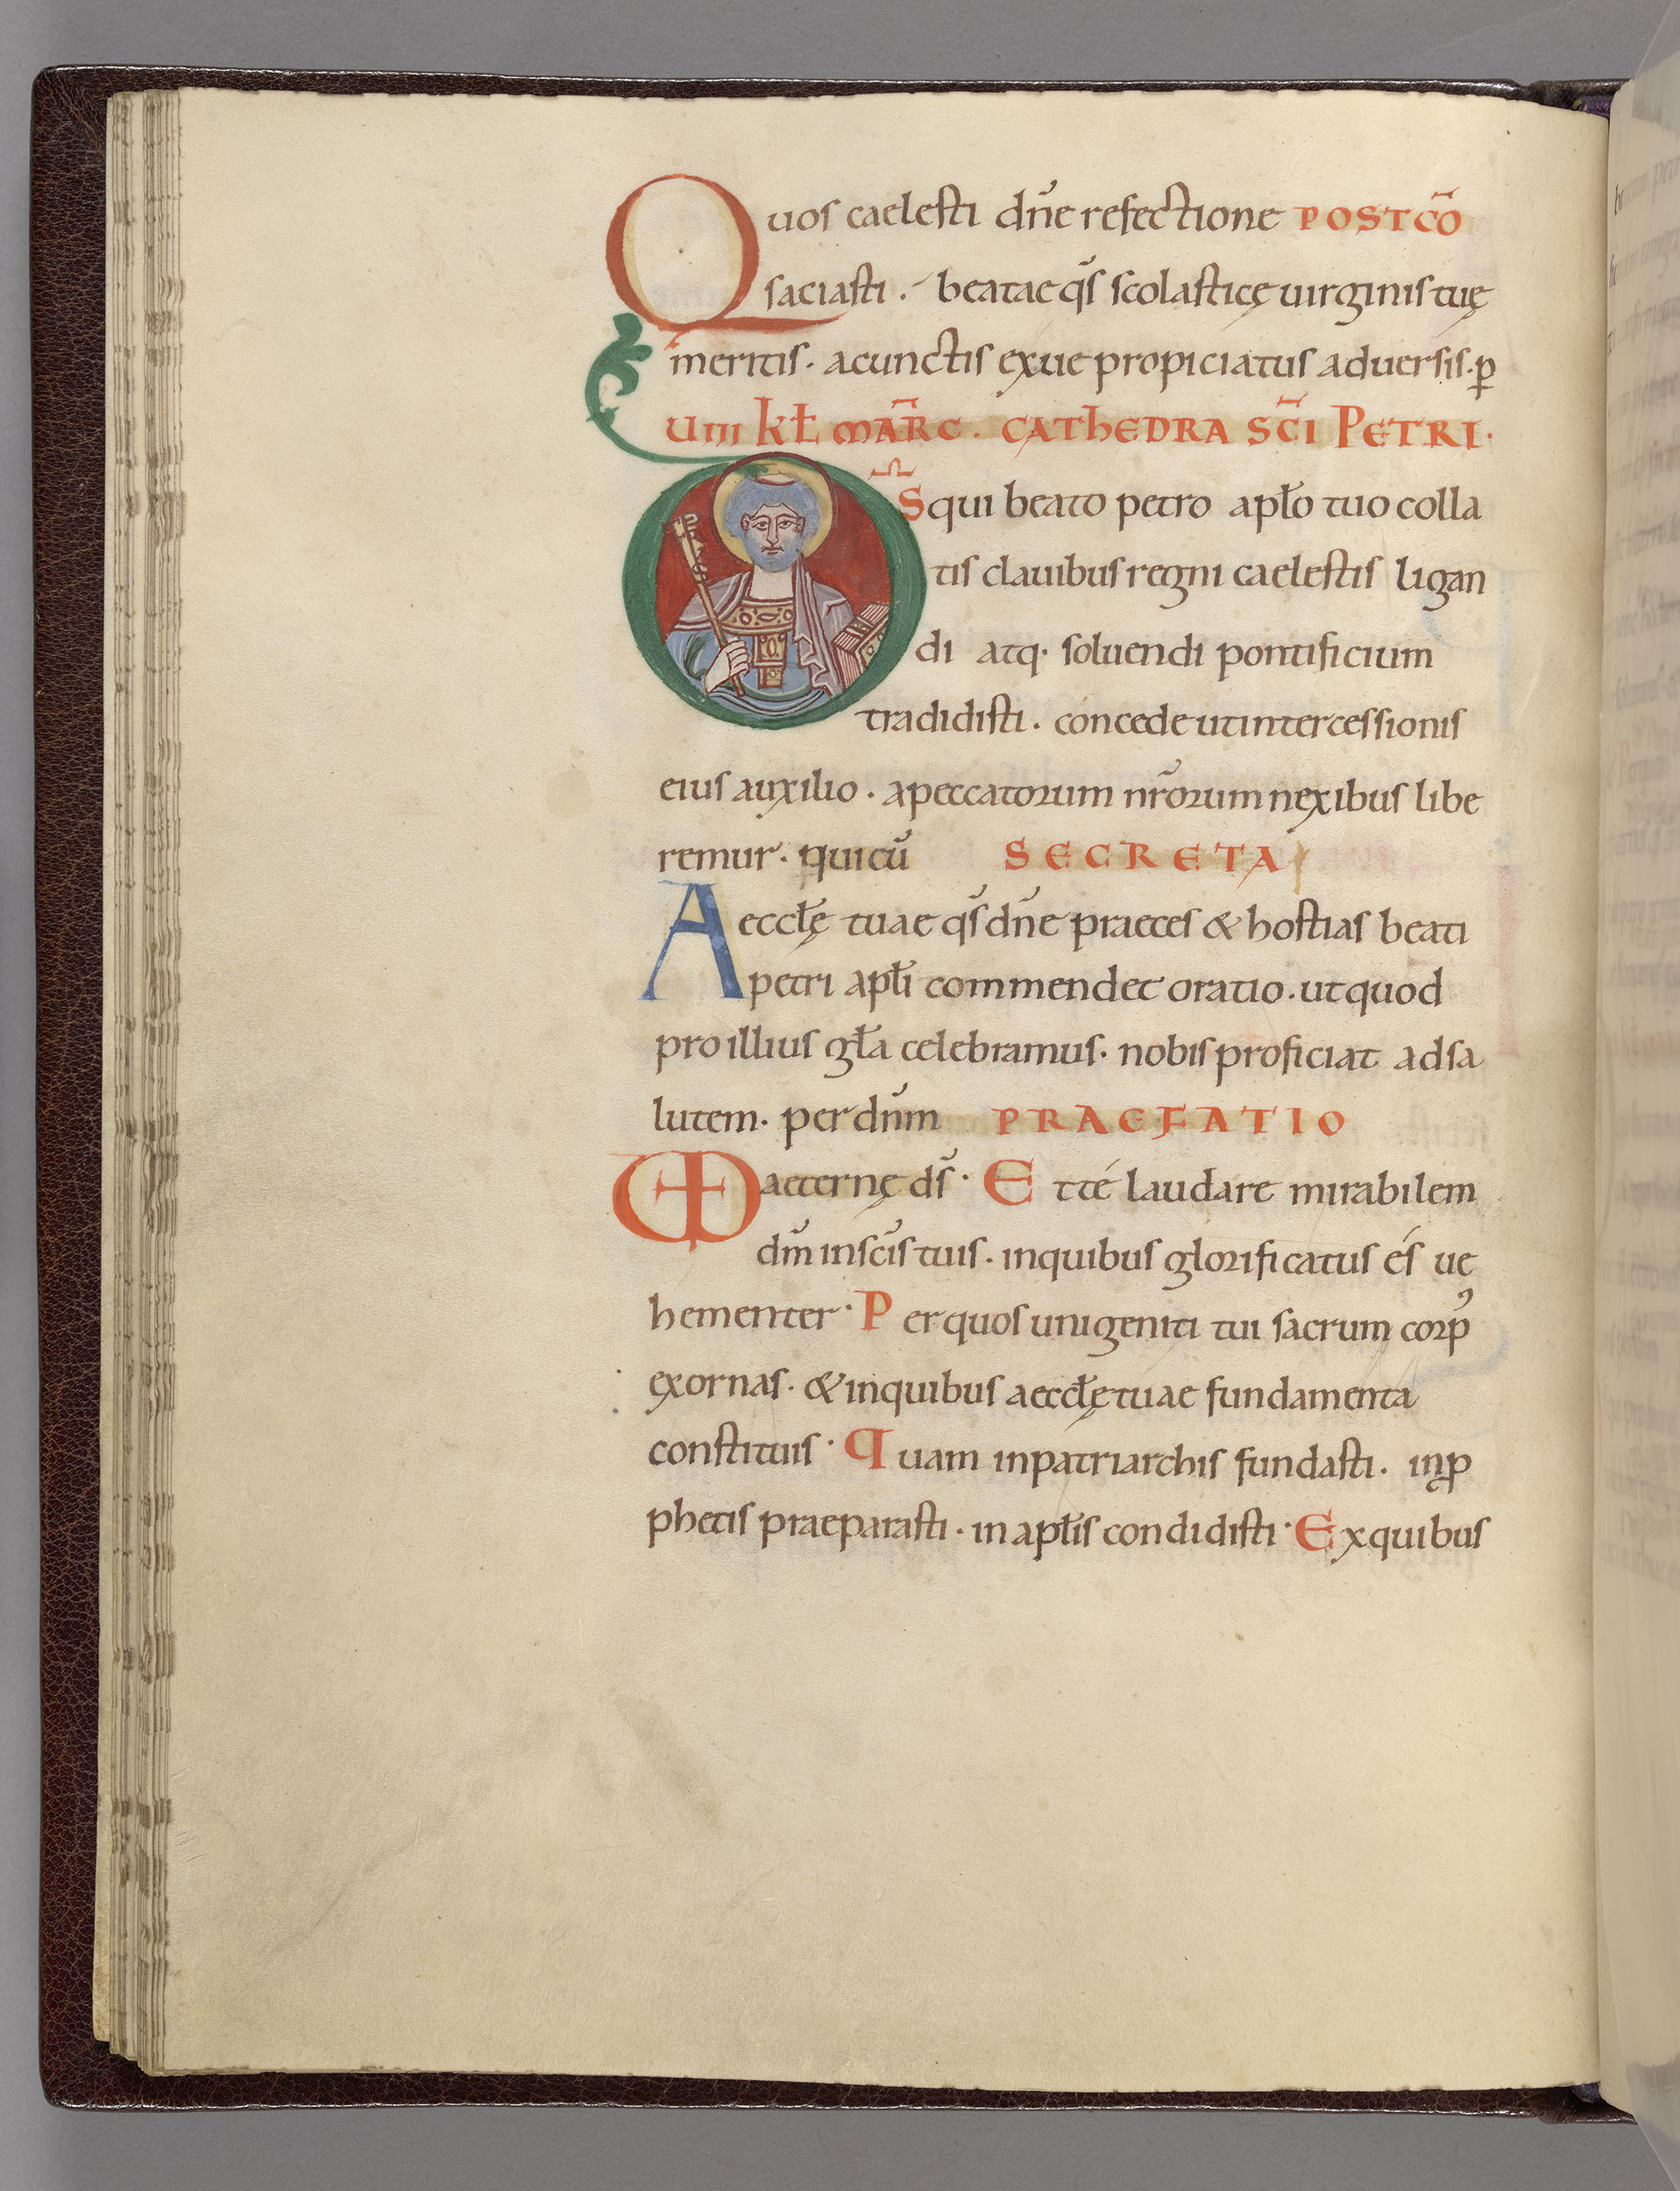 Quos caelesti dn̄e refectione POSTCO̅
saciasti. beatae qs̄ scolasticę uirginis tuę
meritis. acunctis exue propiciatus aduersis. ꝑ
UIII kł MAR̄C. CAThEDRA SC̄I PETRI.
DS̄ qui beato petro apło tuo colla
tis clauibus regni caelestis ligan
di atq. soluendi pontificium
tradidisti. concede ut intercessionis
eius auxilio. apeccatorum nr̄orum nexibus libe
remur. quicū SECRETA
Aeccłę tuae qs̄ dn̄e praeces & hostias beati
petri apłi commendet oratio. ut quod
pro illius gła celebramus. nobis proficiat ad sa
lutem. per dn̄m PRAEFATIO
UD aeternę ds̄. E t té laudare mirabilem
dm̄ in sc̄is tuis. in quibus glorificatus és ue
hementer. P er quos unigeniti tui sacrum corpꝰ
exornas. & inquibus aeccłę tuae fundamenta
constituis. Q uam in patriarchis fundasti. in ꝓ
phetis praeparasti. in apłis condidisti. Ex quibus